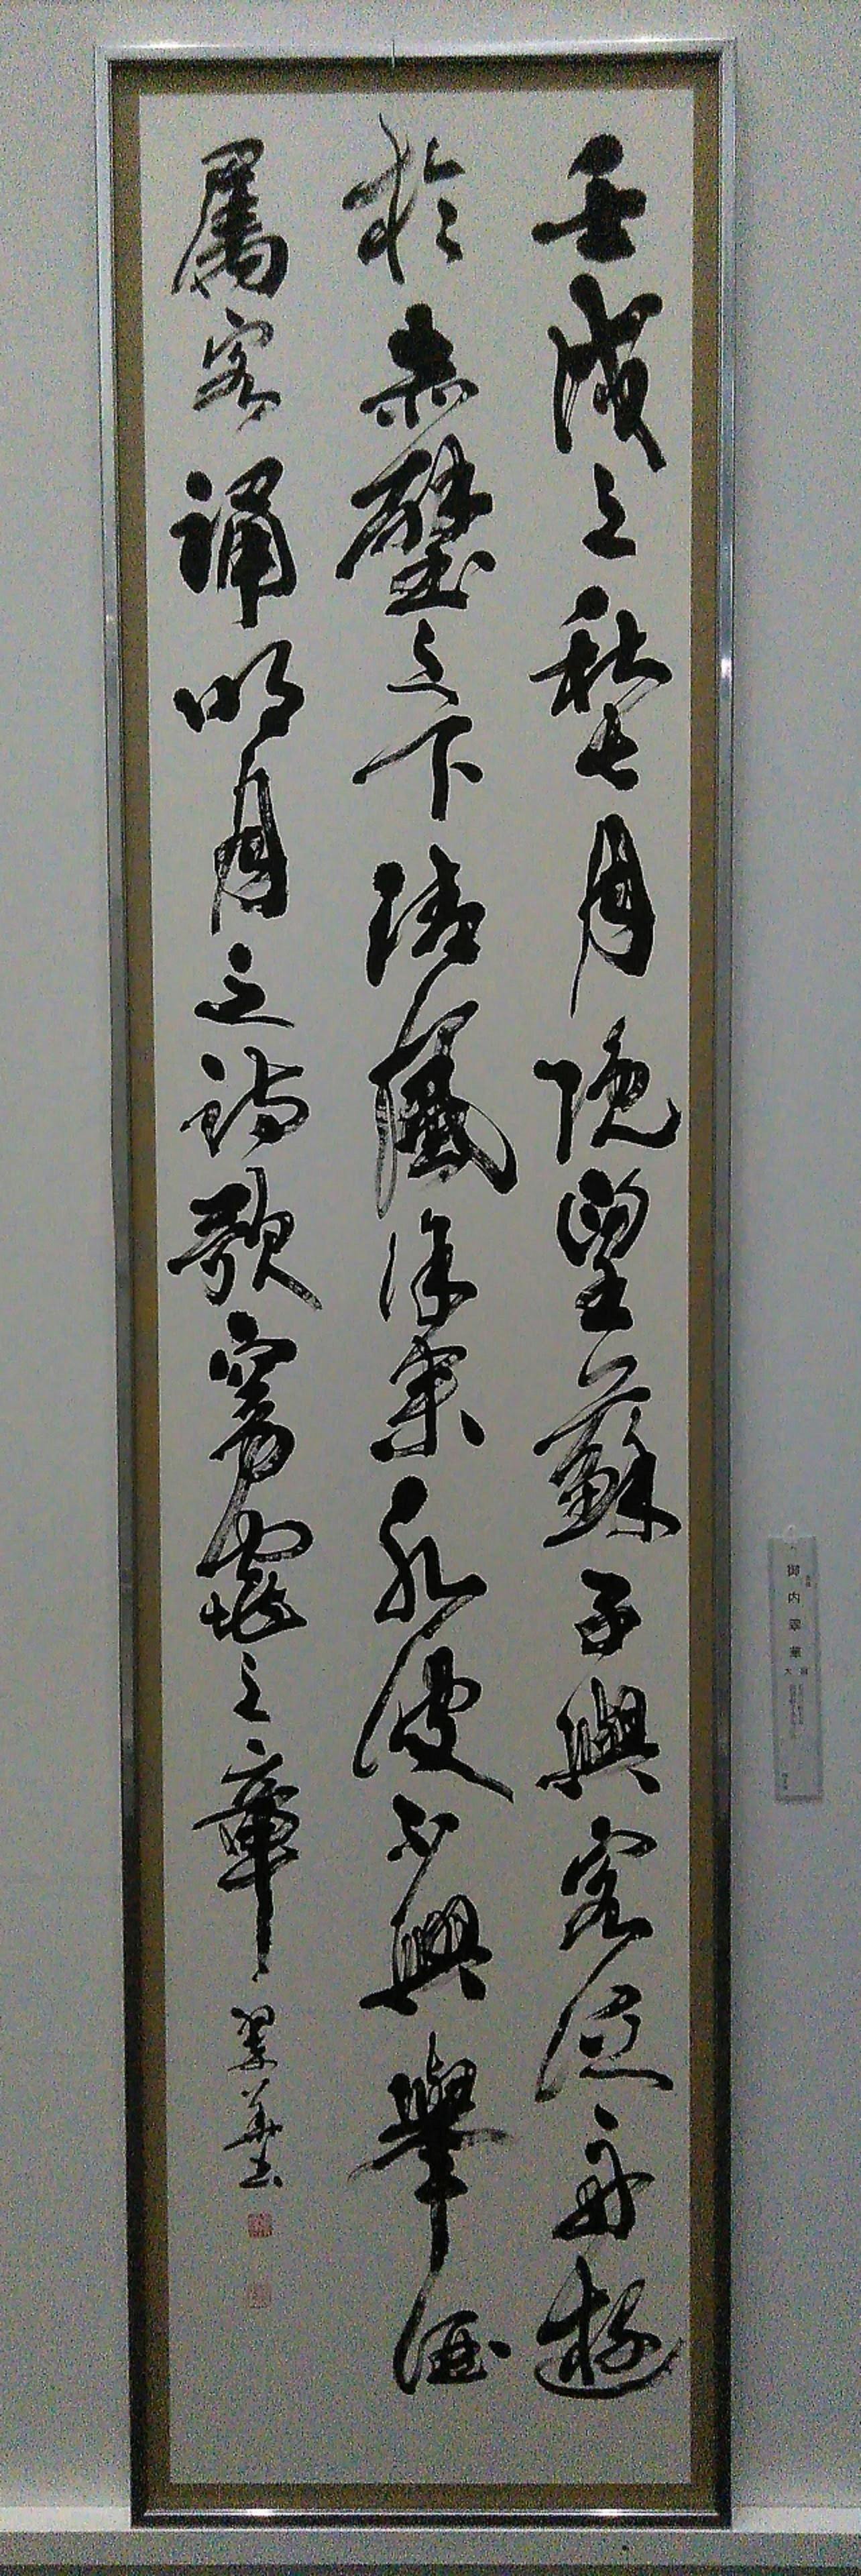 壬戌之秋七月既望蘇子與客泛舟遊
於赤壁之下清風徐來水波不興舉酒
屬客誦明月之詩歌窈窕之章
翠華書
御内翠華